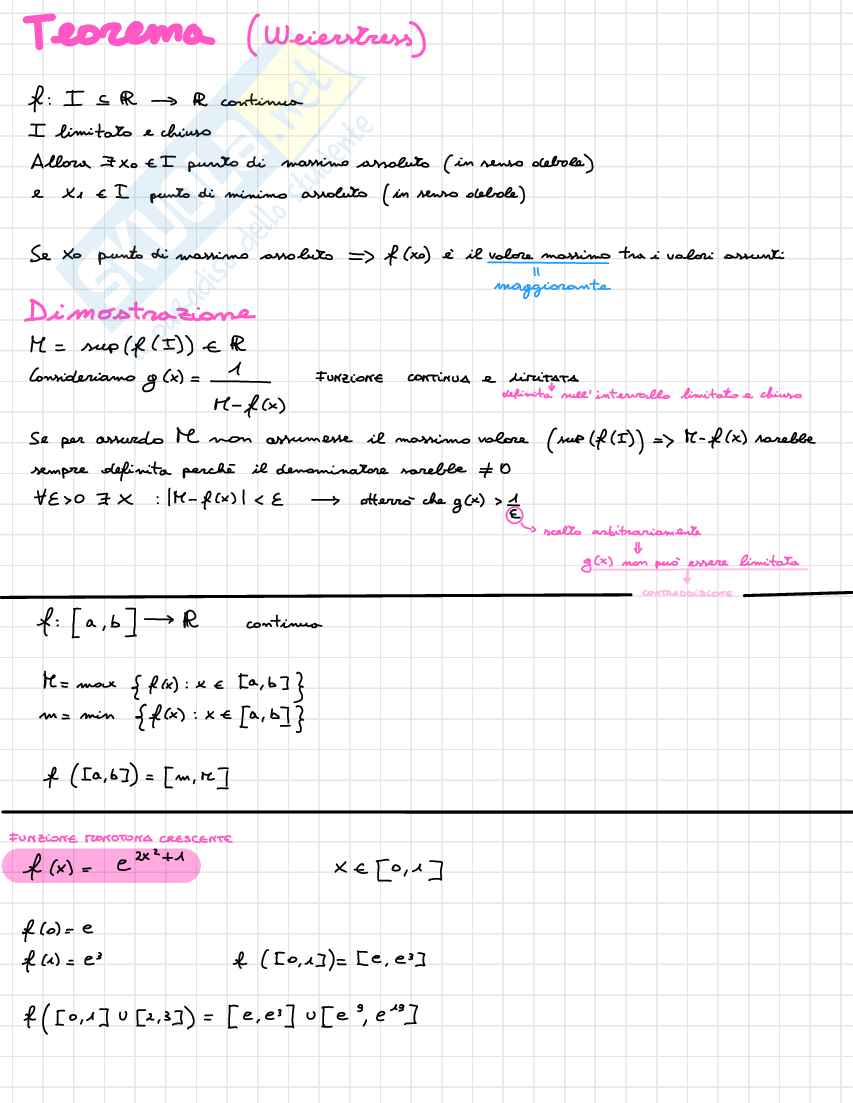 Teorema (Weierstress)
f: I ⊆ ℝ → ℝ continua
I limitato e chiuso
Allora ∃ x₀ ∈ I punto di massimo assoluto (in senso debole)
e x₁ ∈ I punto di minimo assoluto (in senso debole)
Se x₀ punto di massimo assoluto ⟹ f(x₀) è il valore massimo tra i valori assunti
=
maggiorante
Dimostrazione
M = sup(f(I)) ∈ ℝ
Consideriamo g(x) = 1/(M-f(x)) FUNZIONE CONTINUA E LIMITATA
definita nell'intervallo limitato e chiuso
Se per assurdo M non assumesse il massimo valore (sup(f(I)) ⟹ M-f(x) sarebbe
sempre definita perchè il denominatore sarebbe ≠ 0
∀ε>0 ∃ x : |M-f(x)| < ε → otterrò che g(x) > 1/ε
→ scelto arbitrariamente
⇓
g(x) non può essere limitata
↓
CONTRADDIZIONE
f: [a,b] → ℝ continua
M = max {f(x) : x ∈ [a,b]}
m = min {f(x) : x ∈ [a,b]}
f ([a,b]) = [m,M]
FUNZIONE MONOTONA CRESCENTE
f(x) = e^(2x²+1) x ∈ [0,1]
f(0) = e
f(1) = e³ f ([0,1]) = [e, e³]
f([0,1] ∪ [2,3]) = [e, e³] ∪ [e⁹, e¹⁹]
SKUOLA.net
il paradiso dello studente